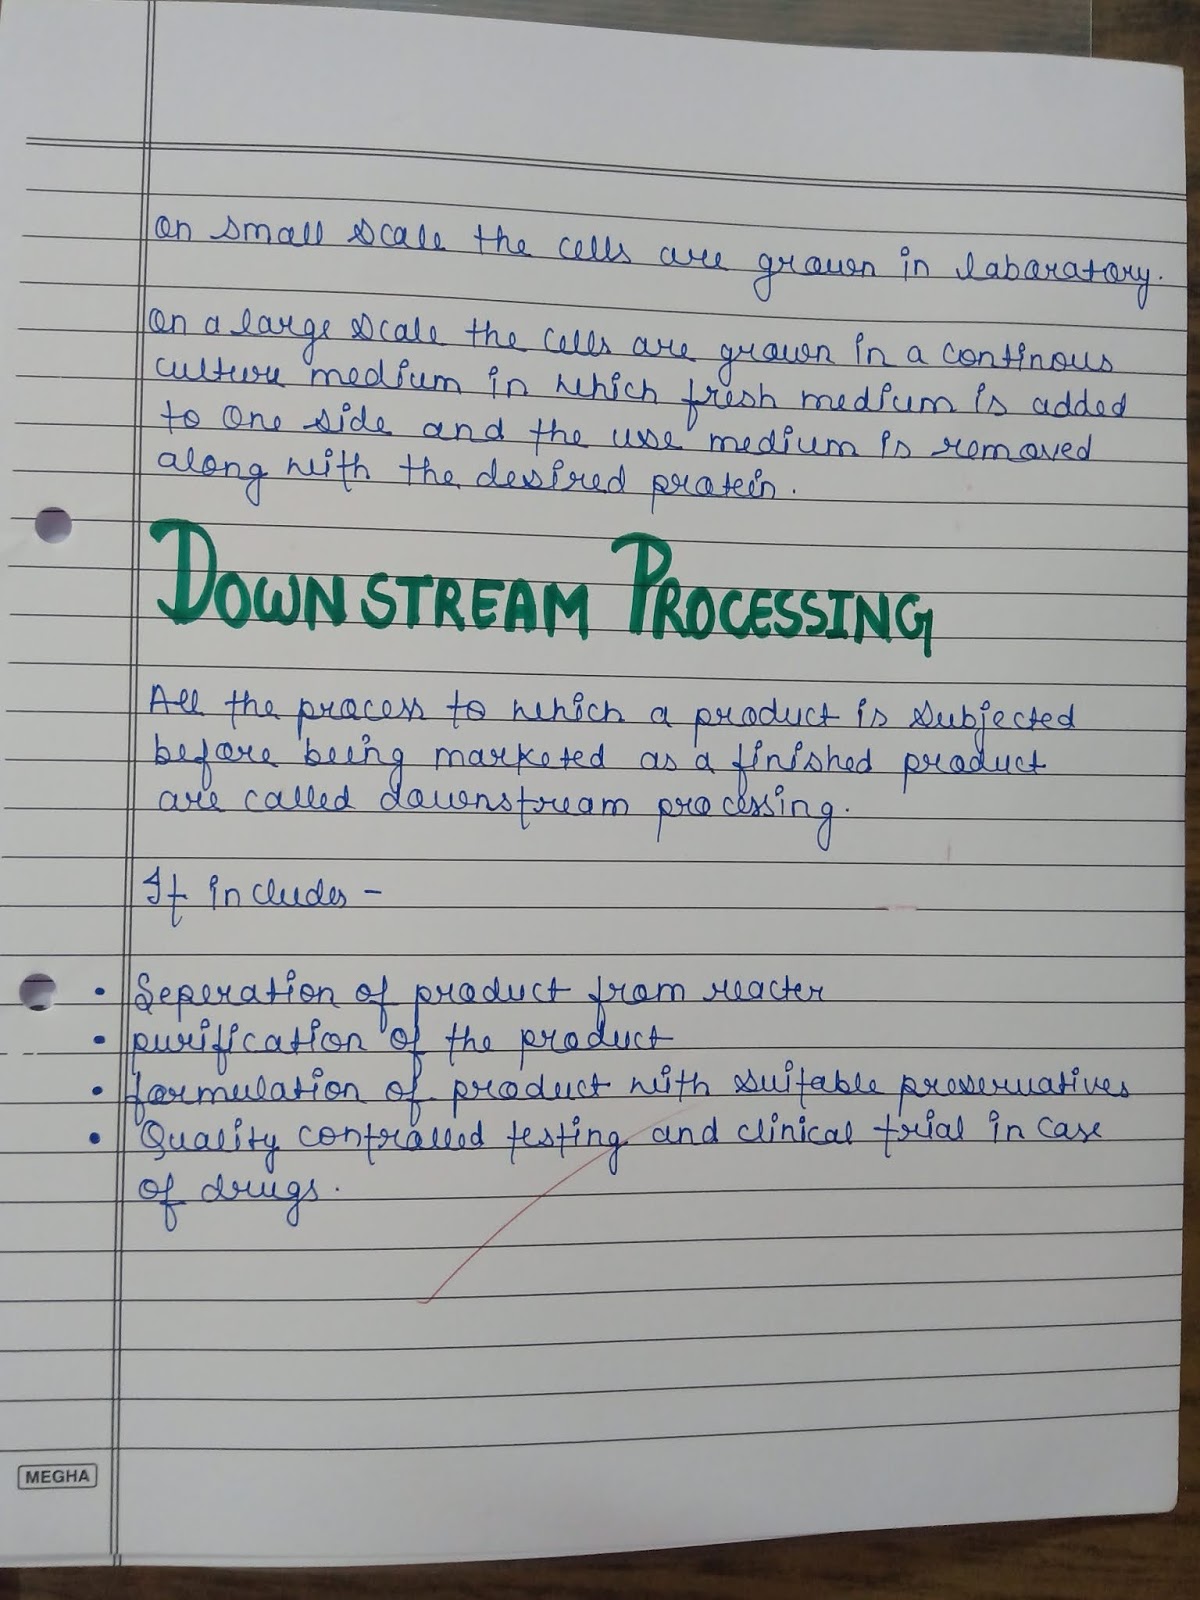 On small scale the cells are grown in labaratory.
On a large scale the cells are grown in a continous
culture medium in which fresh medium is added
to one side and the use medium is removed
along with the desired protein.
DOWNSTREAM PROCESSING
All the process to which a product is subjected
before being marketed as a finished product
are called downstream processing.
It includes -
• Seperation of product from reacter
• purification of the product
• formulation of product with suitable preservatives
• Quality controlled testing and clinical trial in case
of drugs.
MEGHA